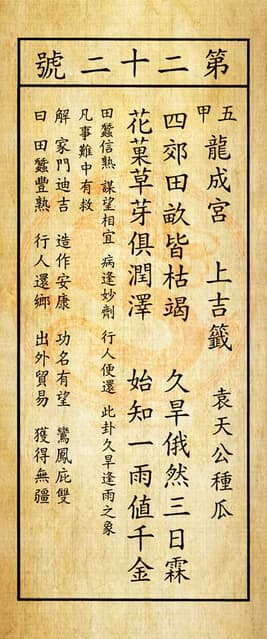 第二十二號
五甲 龍成宮 上吉籤 袁天公種瓜
四郊田畝皆枯竭 久旱俄然三日霖
花菓草芽俱潤澤 始知一雨值千金
田蠶信熟 謀望相宜 病逢妙劑 行人便還 此卦久旱逢雨之象
凡事難中有救
解 家門迪吉 造作安康 功名有望 鸞鳳庇雙
曰 田蠶豐熟 行人還鄉 出外貿易 獲得無疆